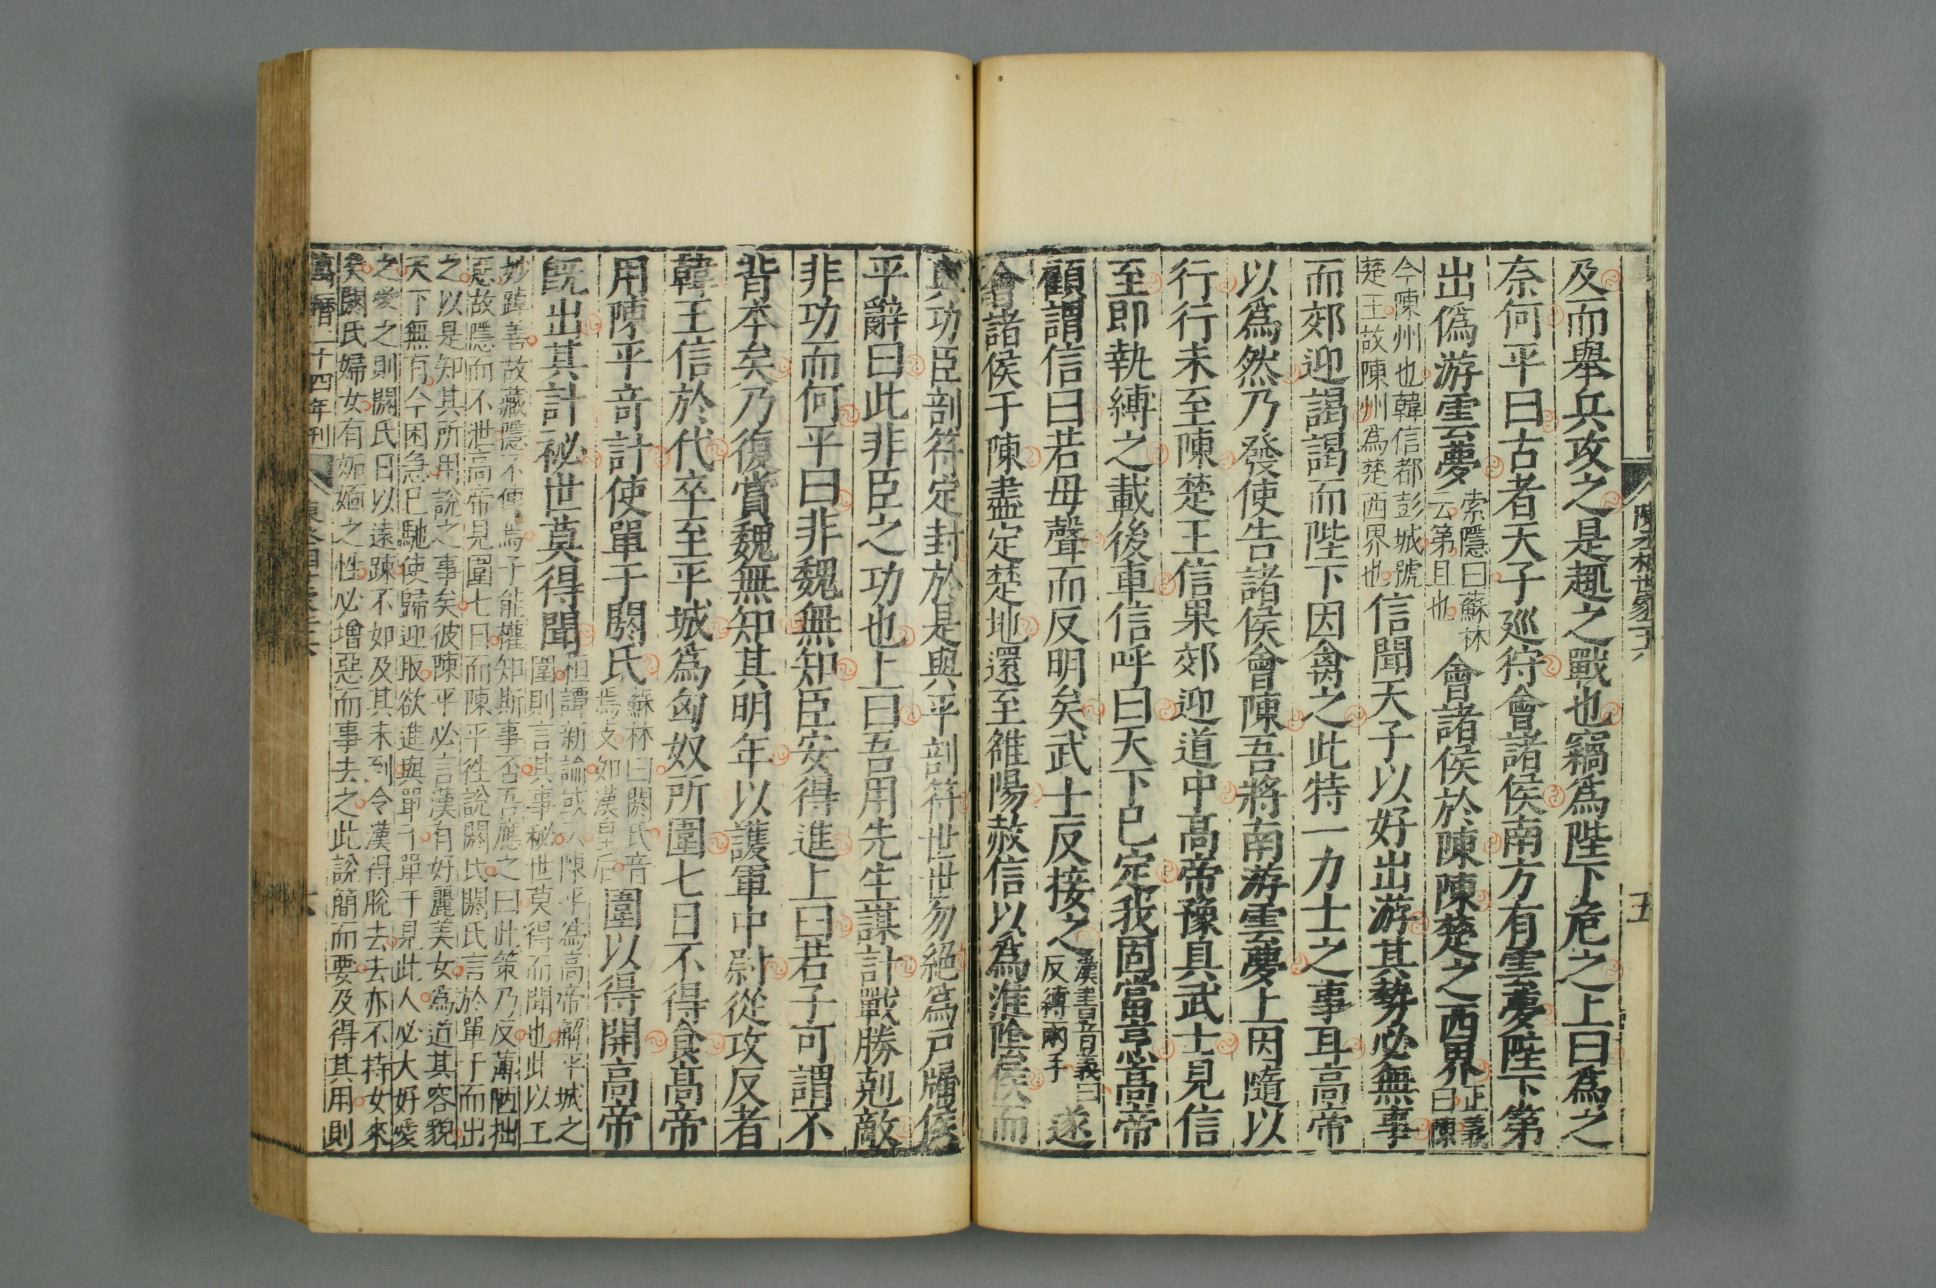 陳丞相世家二十六 五
及而舉兵攻之是趣之戰也竊為陛下危之上曰為之
奈何平曰古者天子廵狩會諸侯南方有雲夢陛下第
出偽游雲夢索隱曰蘇林
云第且也會諸侯於陳陳楚之西界正義
曰陳
今陳州也韓信都彭城號
楚王故陳州為楚西界也信聞天子以好出游其勢必無事
而郊迎謁謁而陛下因禽之此特一力士之事耳高帝
以為然乃發使告諸侯會陳吾將南游雲夢上因隨以
行行未至陳楚王信果郊迎道中高帝豫具武士見信
至即執縛之載後車信呼曰天下已定我固當烹高帝
顧謂信曰若毋聲而反明矣武士反接之漢書音義曰
反縛兩手遂
會諸侯于陳盡定楚地還至雒陽赦信以為淮陰侯而
與功臣剖符定封於是與平剖符世世勿絕為戶牖侯
平辭曰此非臣之功也上曰吾用先生謀計戰勝剋敵
非功而何平曰非魏無知臣安得進上曰若子可謂不
背本矣乃復賞魏無知其明年以護軍中尉從攻反者
韓王信於代卒至平城為匈奴所圍七日不得食高帝
用陳平奇計使單于閼氏蘇林曰閼氏音
焉支如漢皇后圍以得開高帝
既出其計祕世莫得聞桓譚新論或云陳平為高帝解平城之
圍則言其事祕世莫得而聞也此以工
妙踔善故藏隱不傳焉子能權知斯事否吾應之曰此策乃反薄陋拙
惡故隱而不泄高帝見圍七日而陳平往說閼氏閼氏言於單于而出
之以是知其所用說之事矣彼陳平必言漢有好麗美女為道其容貌
天下無有今困急已馳使歸迎取欲進與單于單于見此人必大好愛
之愛之則閼氏日以遠疎不如及其未到令漢得脫去去亦不持女來
矣閼氏婦女有妬媔之性必憎惡而事去之此說簡而要及得其用則
萬曆二十四年刊